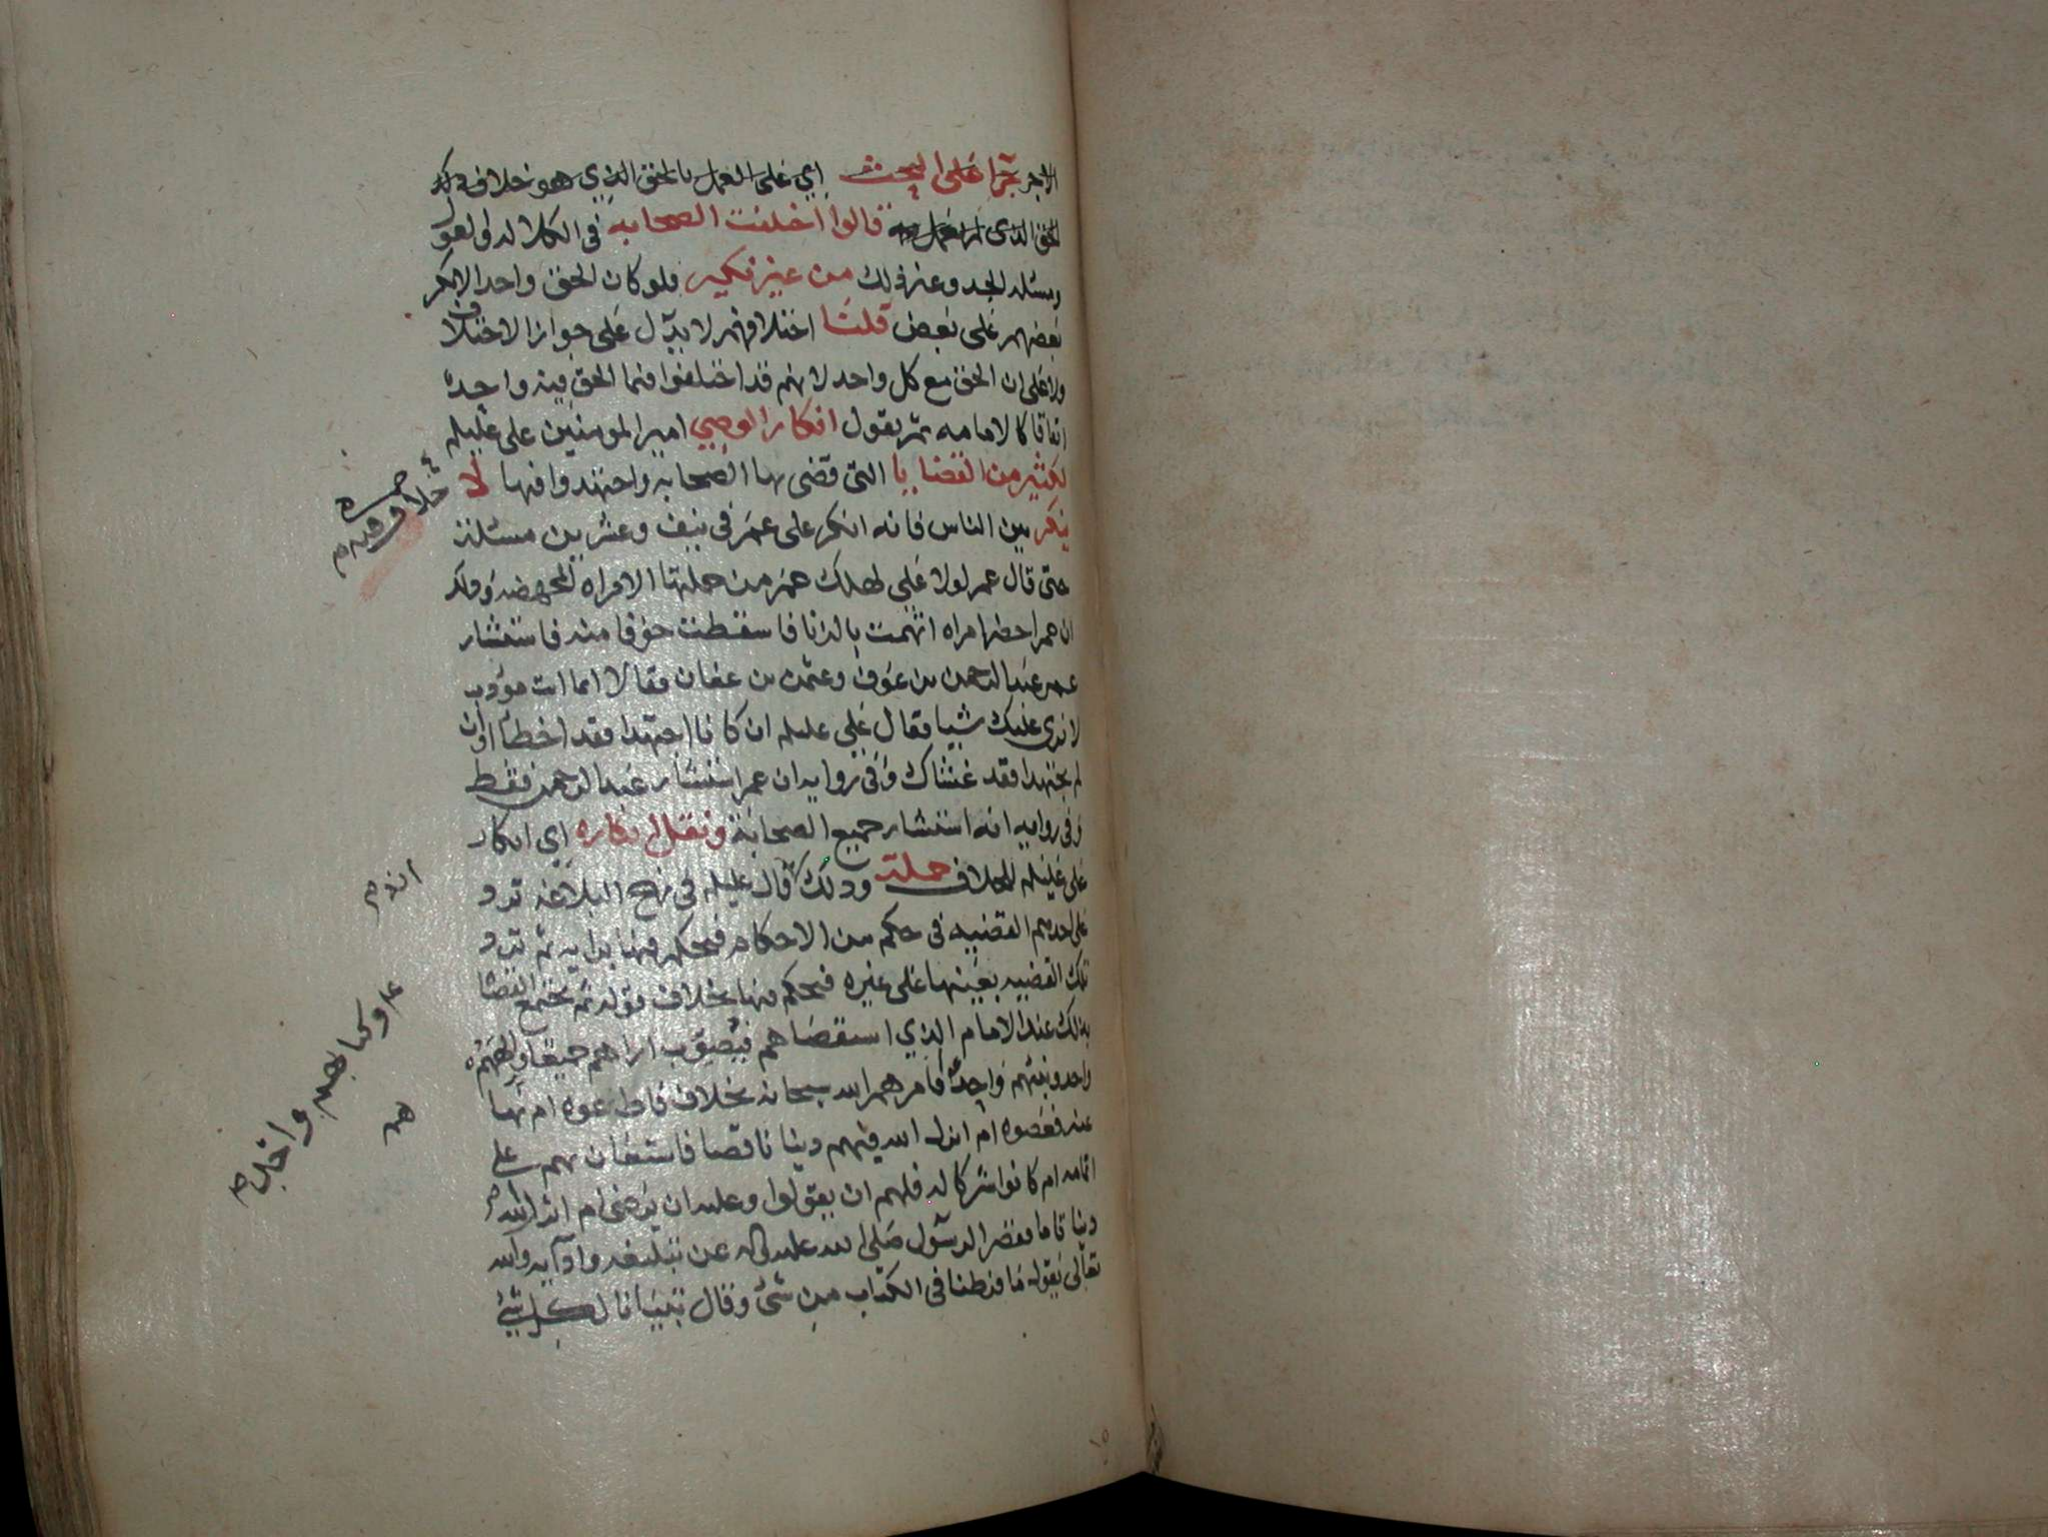 الاجر تجرا على البحث اي على العمل بالحق الذي هو خلاف ذلك
الحق الذي قالوا اختلفت الصحابه في الكلاله والعول
ومسئله الجد وغير ذلك من غير نكير فلو كان الحق واحدا لانكر
بعضهم على بعض قلنا اختلافهم لا يدل على جواز الاختلاف
ولا على ان الحق مع كل واحد لانهم قد اختلفوا فيما الحق فيه واحد
اتفاقا كالامامه ثم يقول انكار الوصي امير المومنين علي عليلم
لكثير من القضايا التي قضى بها الصحابه واجتهدوا فيها لا
ينكر بين الناس فانه انكر على عمر في نيف وعشرين مسئلة
حتى قال عمر لولا علي لهلك عمر من جملتها الامراه المجهضه وذلك
ان عمر احضر امراه اتهمت بالزنا فاسقطت خوفا منه فاستشار
عمر عبد الرحمن بن عوف وعثمن بن عفان فقالا انما انت مودب
لا نرى عليك شيا فقال علي عليلم ان كانا اجتهدا فقد اخطا وان
لم يجتهدا فقد غشاك وفي روايه ان عمر استشار عبد الرحمن فقط
وفي روايه انه استشار جميع الصحابة ونقل انكاره اي انكار
علي عليلم للخلاف جملة وذلك قال عليلم في نهج البلاغه ترد
على احدهم القضيه في حكم من الاحكام فيحكم فيها برايه ثم ترد
تلك القضيه بعينها على غيره فيحكم فيها بخلاف قوله ثم يجتمع القضا
بذلك عند الامام الذي استقضاهم فيصوب اراهم جميعا والههم
واحد ونبيهم واحد افامرهم الله سبحانه بخلاف فاطاعوه ام نهاهم
عنه فعصوه ام انزل الله فيهم دينا ناقصا فاستعان بهم على
اتمامه ام كانوا شركا له فلهم ان يقولوا وعليه ان يرضى ام انزل الله
دينا تاما فقصر الرسول صلى الله عليه واله عن تبليغه وادايه والله
تعالى يقول ما فرطنا في الكتاب من شئ وقال تبيانا لكل شئ